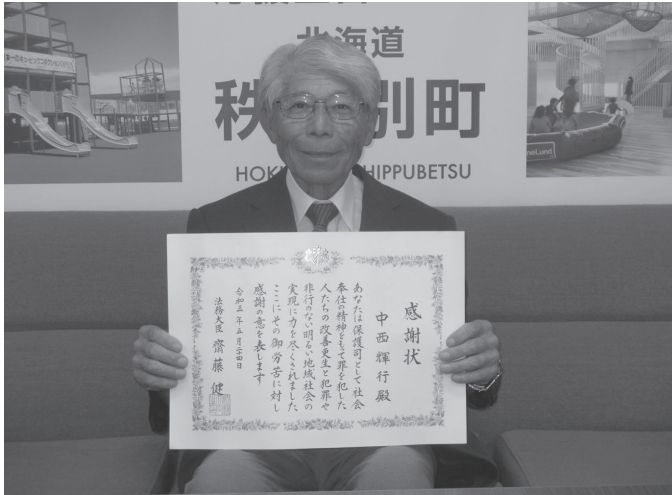 北海道
秩 別町
HOK HIPPUBETSU
感謝状
中西輝行殿
あなたは保護司として社会
奉仕の精神をもって罪を犯した
人たちの改善更生と犯罪や
非行のない明るい地域社会の
実現に力を尽くされました
ここにその御労苦に対し
感謝の意を表します
令和五年五月二十四日
法務大臣 齋藤 健